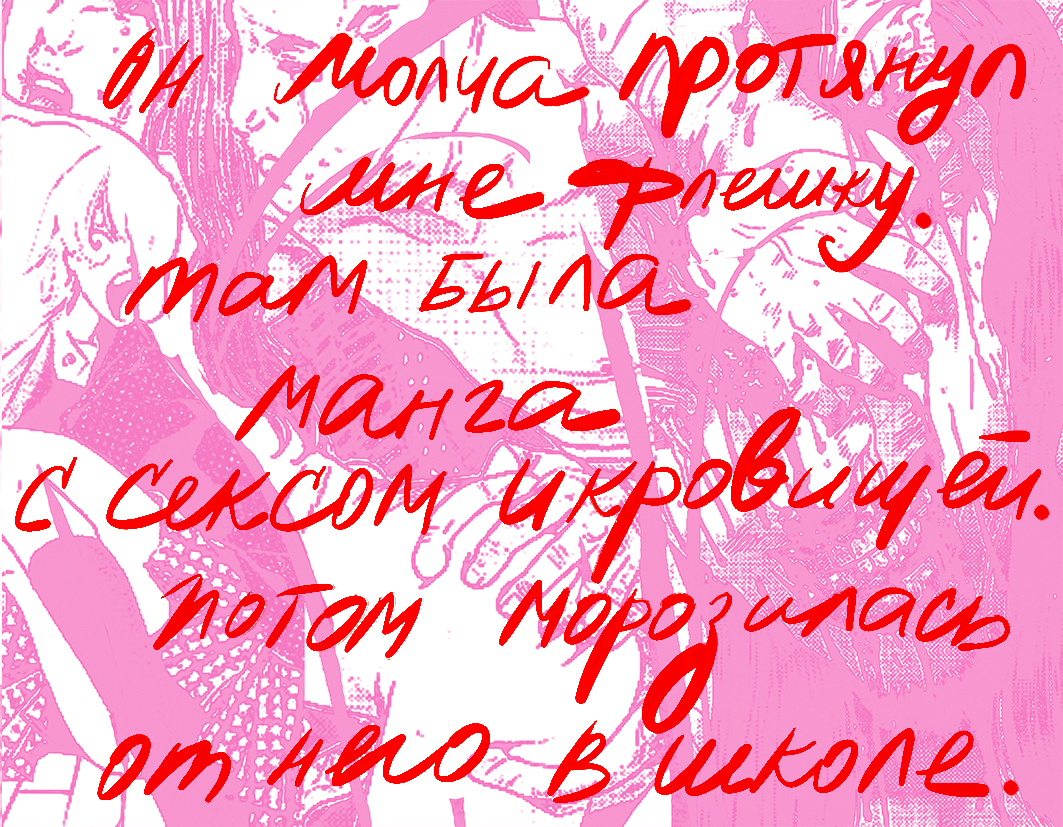 Он молча протянул
мне флешку.
там была
манга
с сексом и кровищей.
потом морозилась
от него в школе.